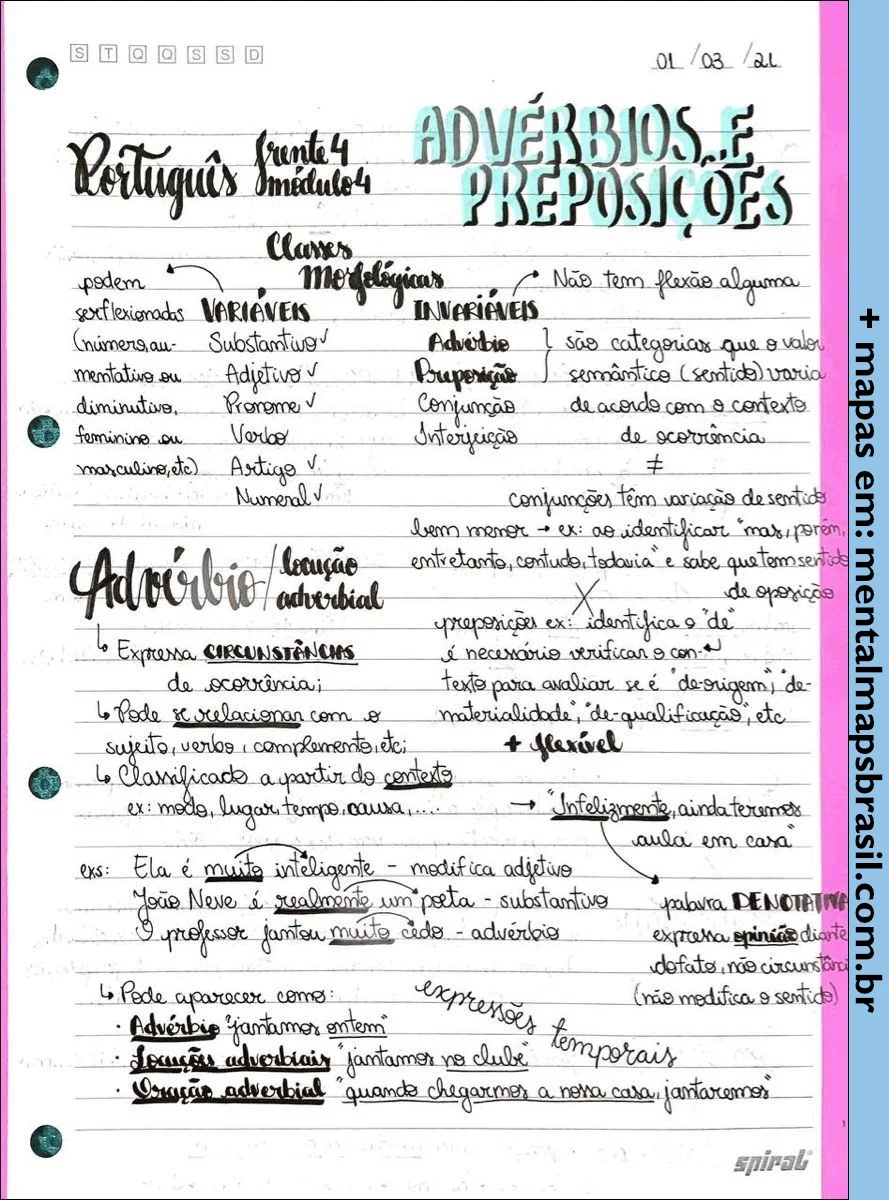 S T Q Q S S D
01 / 03 / 21
Português frente 4
módulo 4
ADVÉRBIOS E
PREPOSIÇÕES
Classes
Morfológicas
podem
ser flexionadas
(número, au-
mentativo ou
diminutivo,
feminino ou
masculino, etc)
VARIÁVEIS
Substantivo ✓
Adjetivo ✓
Pronome ✓
Verbo
Artigo ✓
Numeral ✓
Não tem flexão alguma
INVARIÁVEIS
Advérbio
Preposição
Conjunção
Interjeição
são categorias que o valor
semântico (sentido) varia
de acordo com o contexto
de ocorrência
≠
conjunções têm variação de sentido
bem menor → ex: ao identificar "mas, porém,
entretanto, contudo, todavia" e sabe que tem sentido
de oposição
X
preposições ex: identifica o "de"
é necessário verificar o con-
texto para avaliar se é "de-origem", "de-
materialidade", "de-qualificação", etc
+ flexível
Advérbio / locução
adverbial
↳ Expressa CIRCUNSTÂNCIAS
de ocorrência;
↳ Pode se relacionar com o
sujeito, verbo, complemento, etc;
↳ Classificado a partir do contexto
ex: modo, lugar, tempo, causa, ....
→ "Infelizmente, ainda teremos
aula em casa"
palavra DENOTATIVA
expressa opinião diante
do fato, não circunstância
(não modifica o sentido)
exs: Ela é muito inteligente - modifica adjetivo
João Neve é realmente um poeta - substantivo
O professor jantou muito cedo - advérbio
↳ Pode aparecer como:
expressões temporais
· Advérbio "jantamos ontem"
· Locuções adverbiais "jantamos no clube"
· Oração adverbial "quando chegarmos a nossa casa, jantaremos"
spiral
+ mapas em: mentalmapsbrasil.com.br